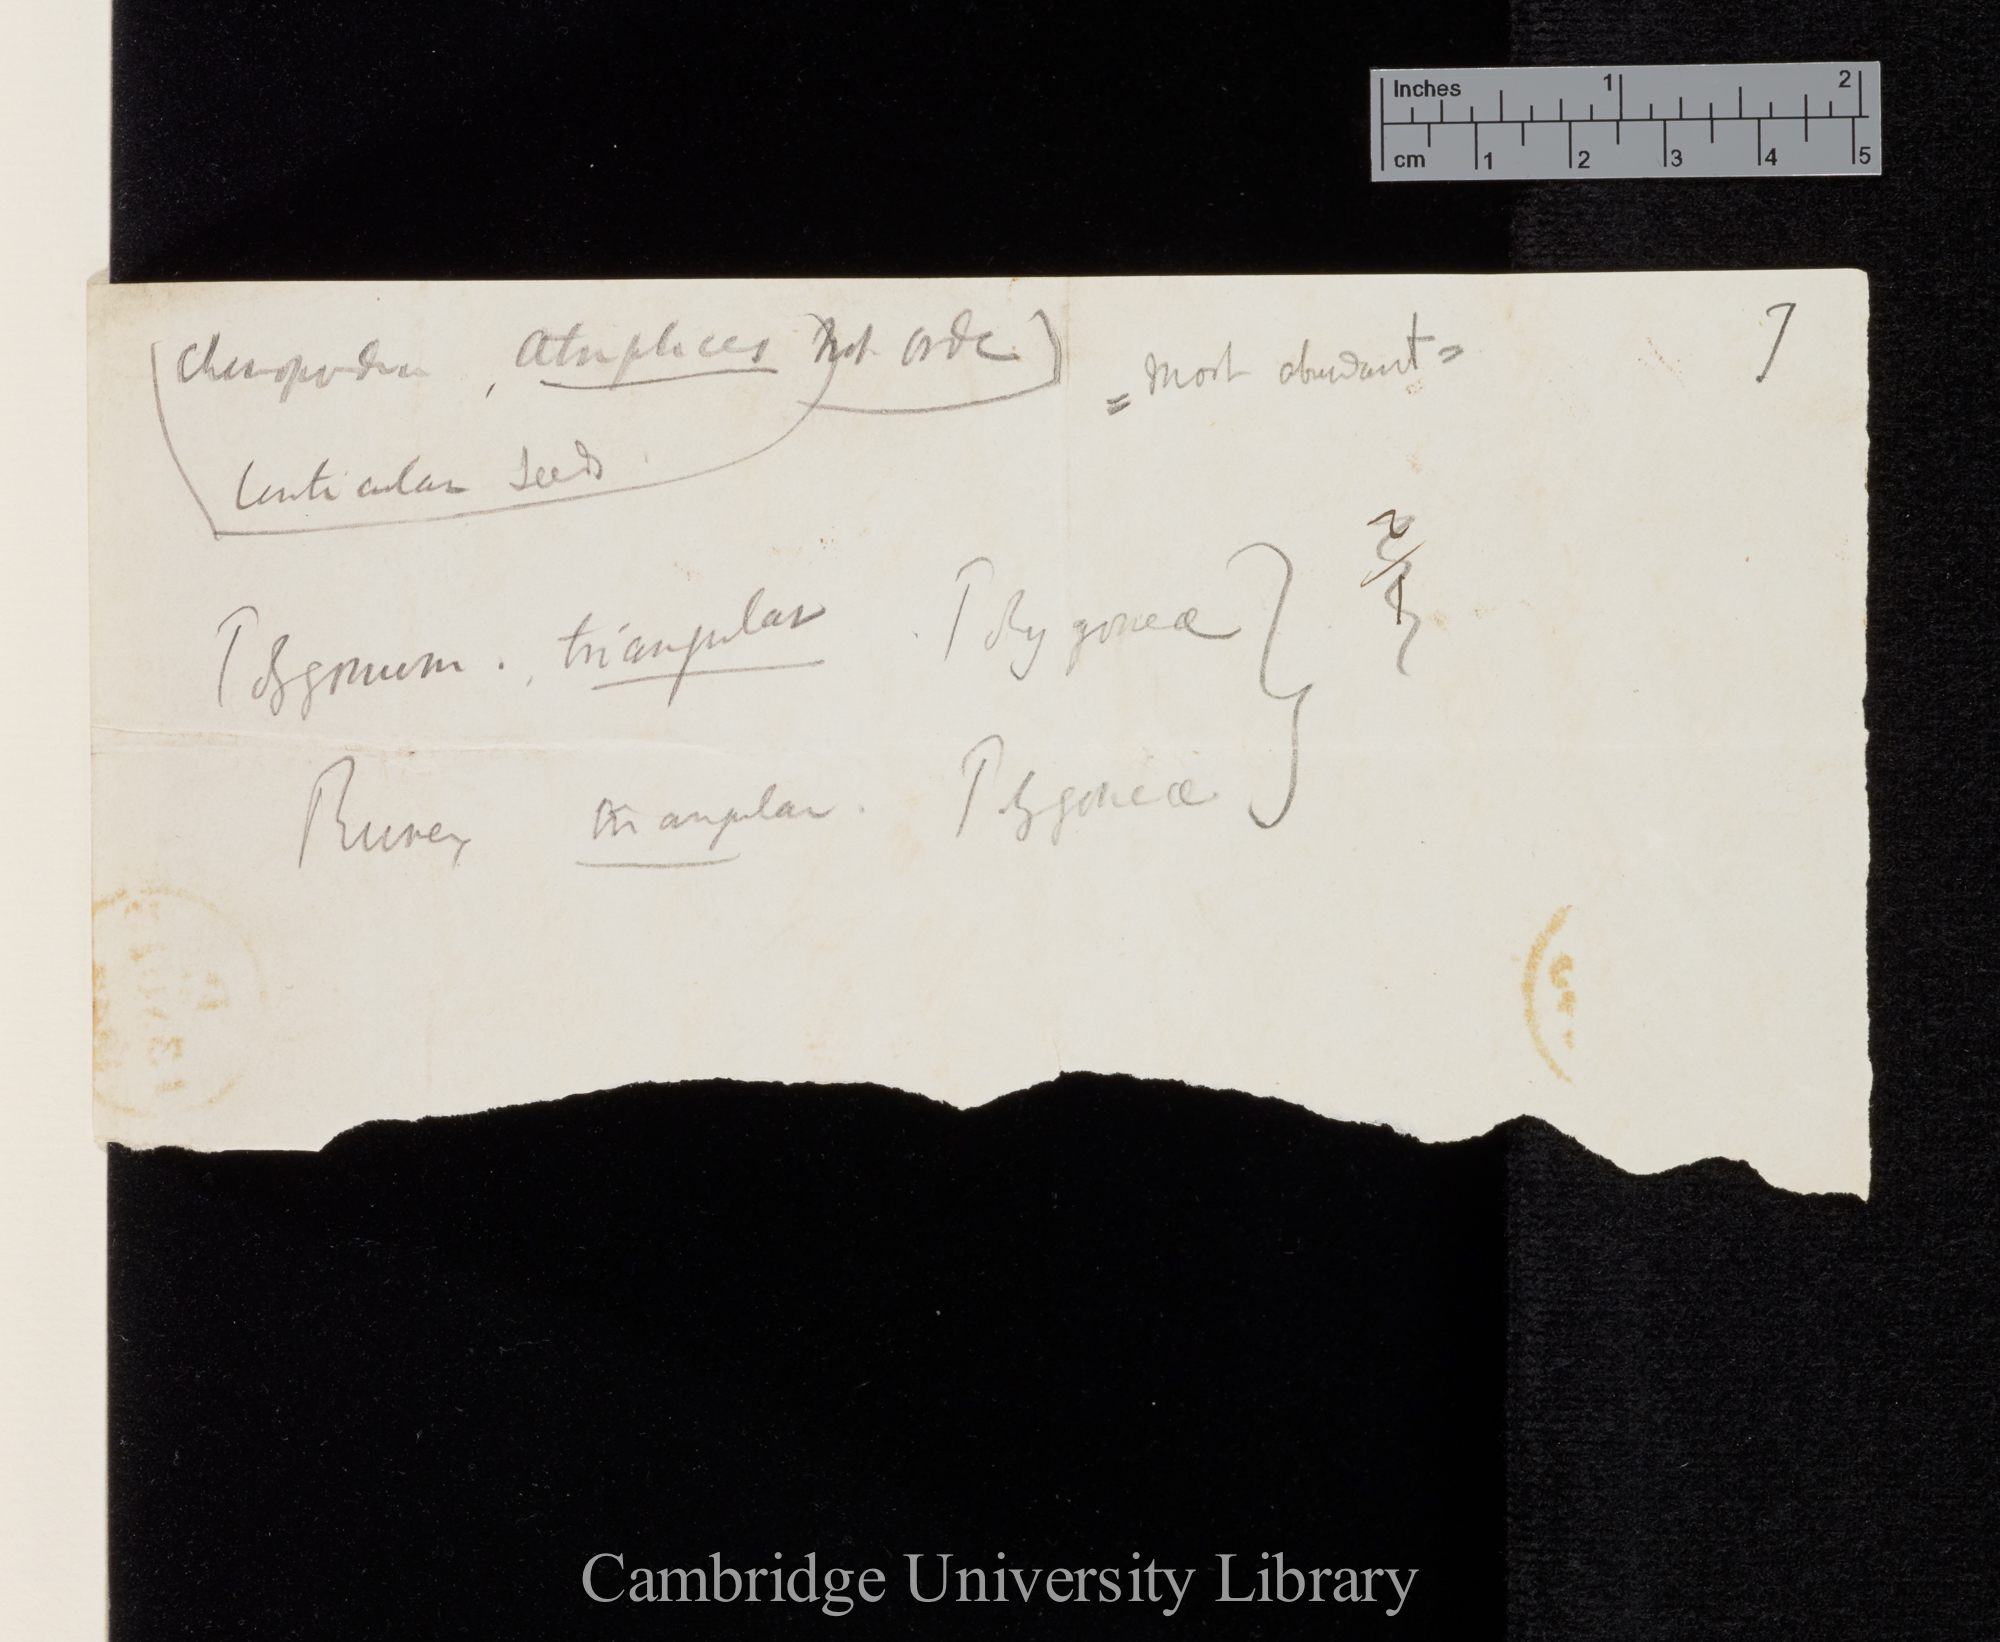 Inches 1 2
cm 1 2 3 4 5
(Chenopodium, Atriplices Nat. Orde) = most abundant =
lenticular seeds.
Polygonum . , triangular . Polygoneæ }
Rumex triangular . Polygoneæ
Cambridge University Library